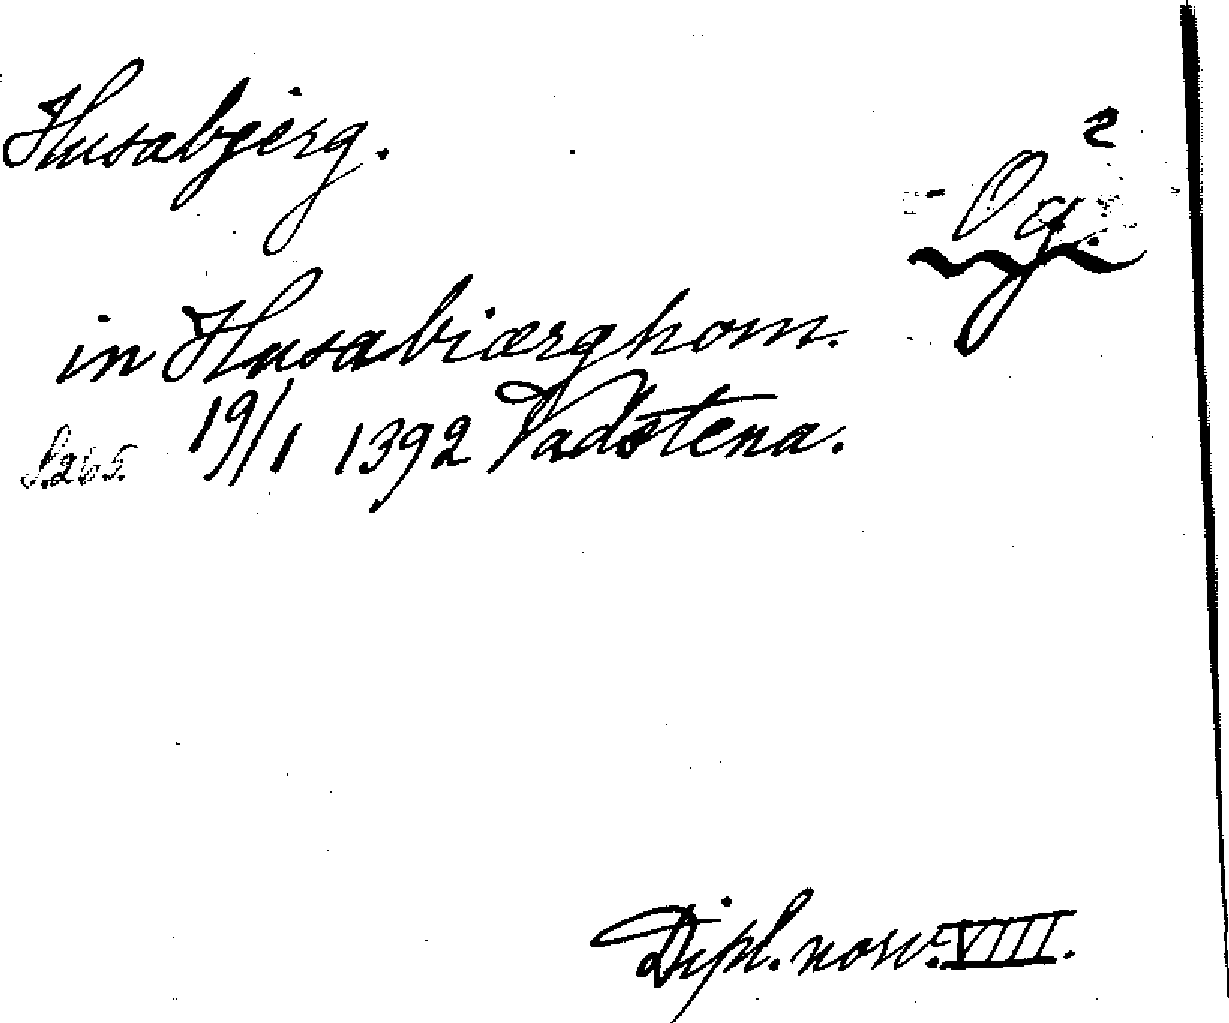 Husabjerg.
e
Og.
in Husabiærghom.
S. 265. 19/1 1392 Vadstena.
Dipl. norv. VIII.